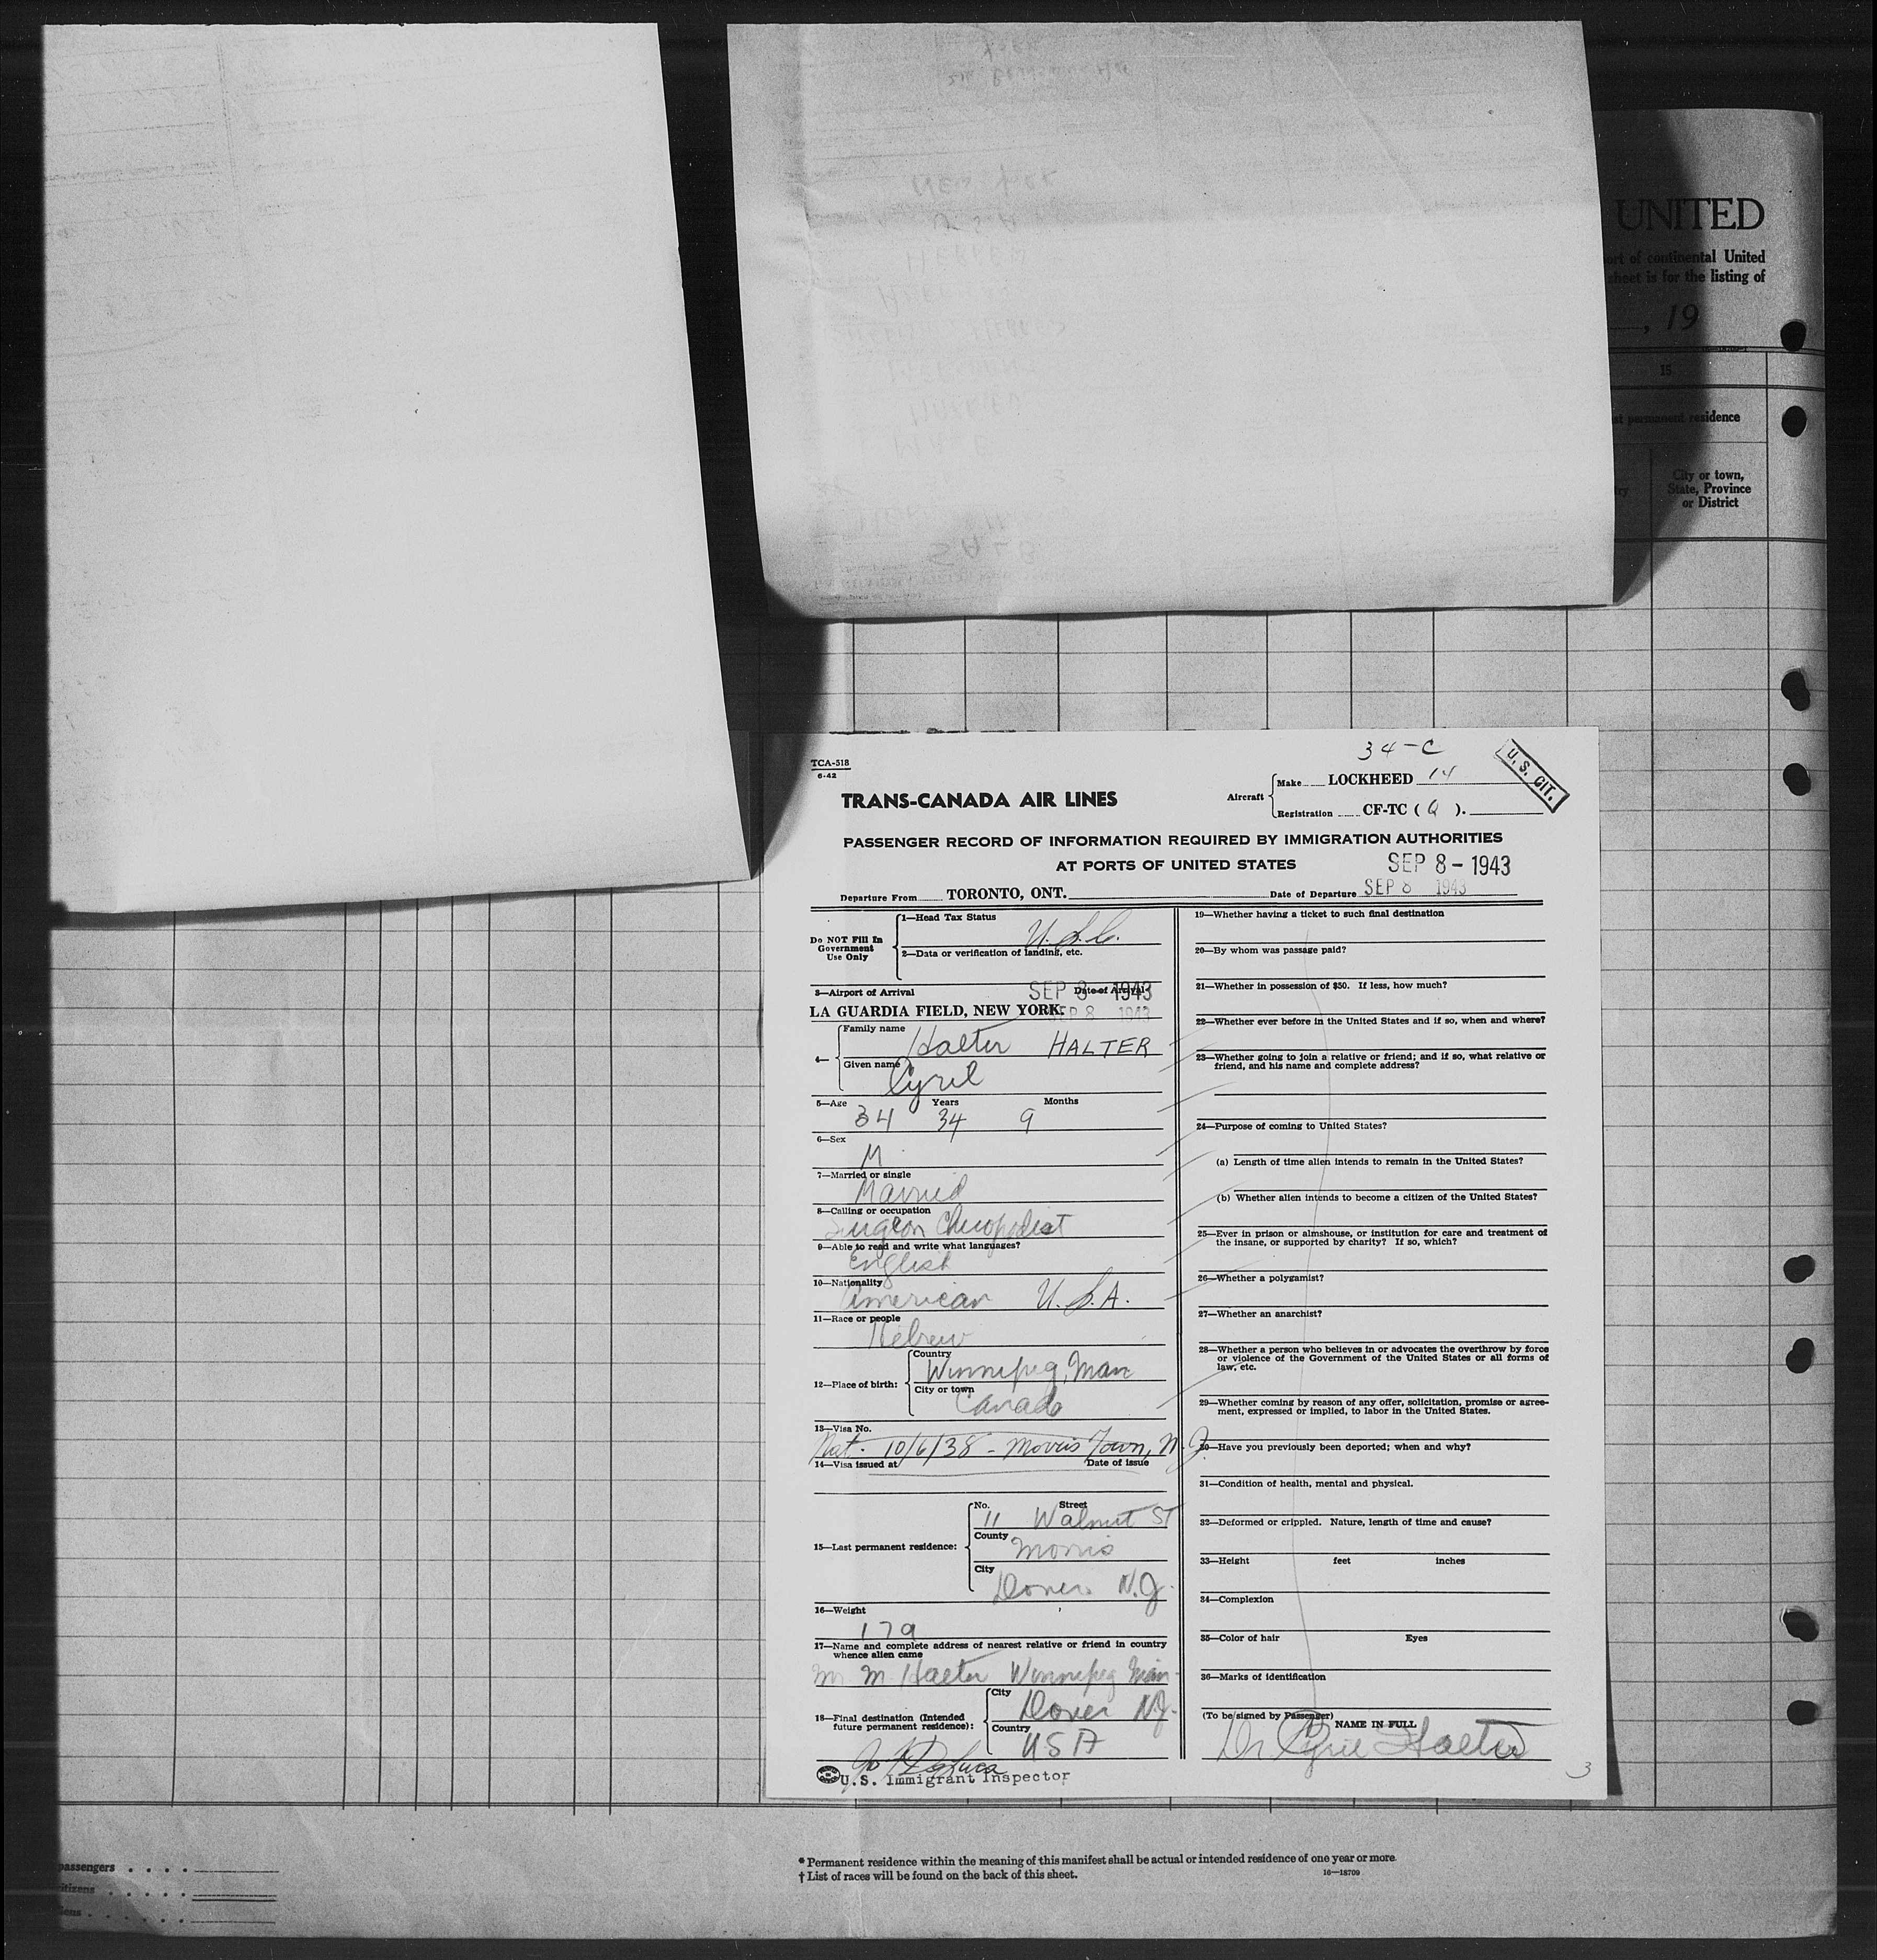 UNITED
ort of continental United
sheet is for the listing of
, 19
15
st permanent residence
City or town,
State, Province
or District
34-C
TCA-518
6-42
U. S. CIT.
TRANS-CANADA AIR LINES
Aircraft
Make LOCKHEED 14
Registration CF-TC ( Q ).
PASSENGER RECORD OF INFORMATION REQUIRED BY IMMIGRATION AUTHORITIES
AT PORTS OF UNITED STATES
SEP 8 - 1943
Departure From TORONTO, ONT.
Date of Departure SEP 8 1943
Do NOT Fill In
Government
Use Only
1—Head Tax Status
U.S.C.
2—Data or verification of landing, etc.
3—Airport of Arrival
Date of Arrival
SEP 8 - 1943
LA GUARDIA FIELD, NEW YORK.
SEP 8 1943
4—
Family name
Halter HALTER
Given name
Cyril
5—Age Years Months
34 34 9
6—Sex
M
7—Married or single
Married
8—Calling or occupation
Surgeon Chiropodist
9—Able to read and write what languages?
English
10—Nationality
American U.S.A.
11—Race or people
Hebrew
12—Place of birth:
Country
Winnipeg, Man
City or town
Canada
13—Visa No.
Nat. 10/6/38 - Morris Town, N.J.
14—Visa issued at Date of issue
15—Last permanent residence:
No. Street
11 Walnut St
County
Morris
City
Dover N.J.
16—Weight
179
17—Name and complete address of nearest relative or friend in country
whence alien came
Mr M. Halter Winnipeg Man-
18—Final destination (Intended
future permanent residence):
City
Dover N.J.
Country
USA
U.S. Immigrant Inspector
19—Whether having a ticket to such final destination
20—By whom was passage paid?
21—Whether in possession of $50. If less, how much?
22—Whether ever before in the United States and if so, when and where?
23—Whether going to join a relative or friend; and if so, what relative or
friend, and his name and complete address?
24—Purpose of coming to United States?
(a) Length of time alien intends to remain in the United States?
(b) Whether alien intends to become a citizen of the United States?
25—Ever in prison or almshouse, or institution for care and treatment of
the insane, or supported by charity? If so, which?
26—Whether a polygamist?
27—Whether an anarchist?
28—Whether a person who believes in or advocates the overthrow by force
or violence of the Government of the United States or all forms of
law, etc.
29—Whether coming by reason of any offer, solicitation, promise or agree-
ment, expressed or implied, to labor in the United States.
30—Have you previously been deported; when and why?
31—Condition of health, mental and physical.
32—Deformed or crippled. Nature, length of time and cause?
33—Height feet inches
34—Complexion
35—Color of hair Eyes
36—Marks of identification
(To be signed by Passenger)
NAME IN FULL
Dr Cyril Halter
3
passengers . . . .
* Permanent residence within the meaning of this manifest shall be actual or intended residence of one year or more.
† List of races will be found on the back of this sheet.
16—18709